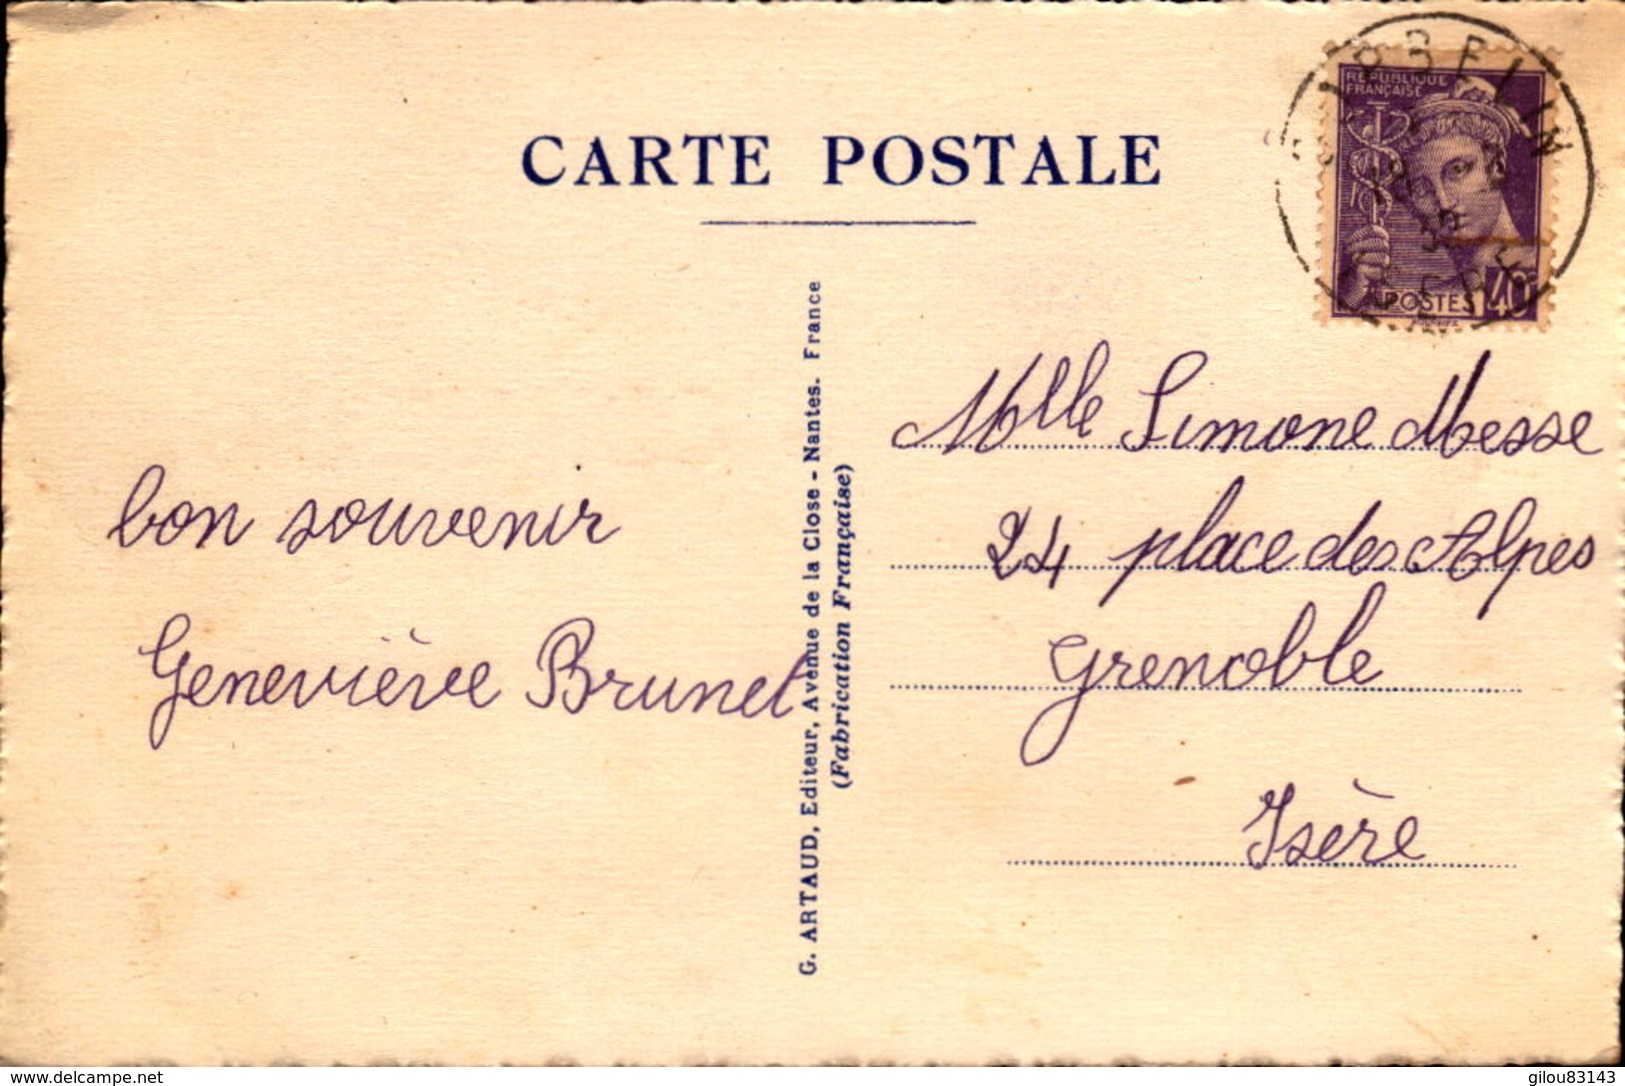 CARTE POSTALE
RÉPUBLIQUE
FRANÇAISE
POSTES 40
bon souvenir
Geneviève Brunet
G. ARTAUD, Editeur, Avenue de la Close - Nantes. France
(Fabrication Française)
Mlle Simone Messe
24 place des Alpes
Grenoble
Isère
www.delcampe.net
gilou83143